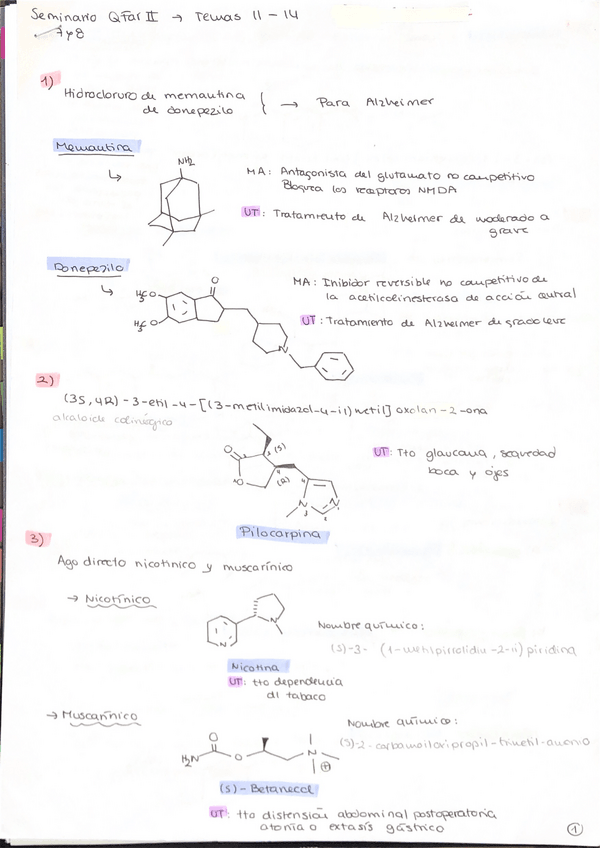 Seminario QFar II → Temas 11-14
7 y 8
1)
Hidrocloruro de memantina
de donepezilo } → Para Alzheimer
Memantina
NH2
MA: Antagonista del glutamato no competitivo
Bloquea los receptores NMDA
UT: Tratamiento de Alzheimer de moderado a
grave
Donepezilo
O
H3C O
H3C O
N
MA: Inhibidor reversible no competitivo de
la acetilcolinesterasa de acción central
UT: Tratamiento de Alzheimer de grado leve
2)
(3S,4R)-3-etil-4-[(3-metilimidazol-4-il)metil]oxolan-2-ona
alcaloide colinérgico
O
(S)
O
(R)
4
N
3
2
N
1
UT: Tto glaucoma, sequedad
boca y ojos
Pilocarpina
3)
Ago directo nicotínico y muscarínico
→ Nicotínico
N
N
Nombre químico:
(S)-3-(1-metilpirrolidin-2-il)piridina
Nicotina
UT: tto dependencia
al tabaco
→ Muscarínico
O
H2N
O
N
⊕
Nombre químico:
(S)-2-carbamoiloxipropil-trimetil-amonio
(S)-Betanecol
UT: tto distensión abdominal postoperatoria
atonía o extasis gástrico
1